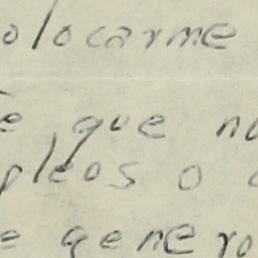 olocarme
e que no
pleos o
e genero